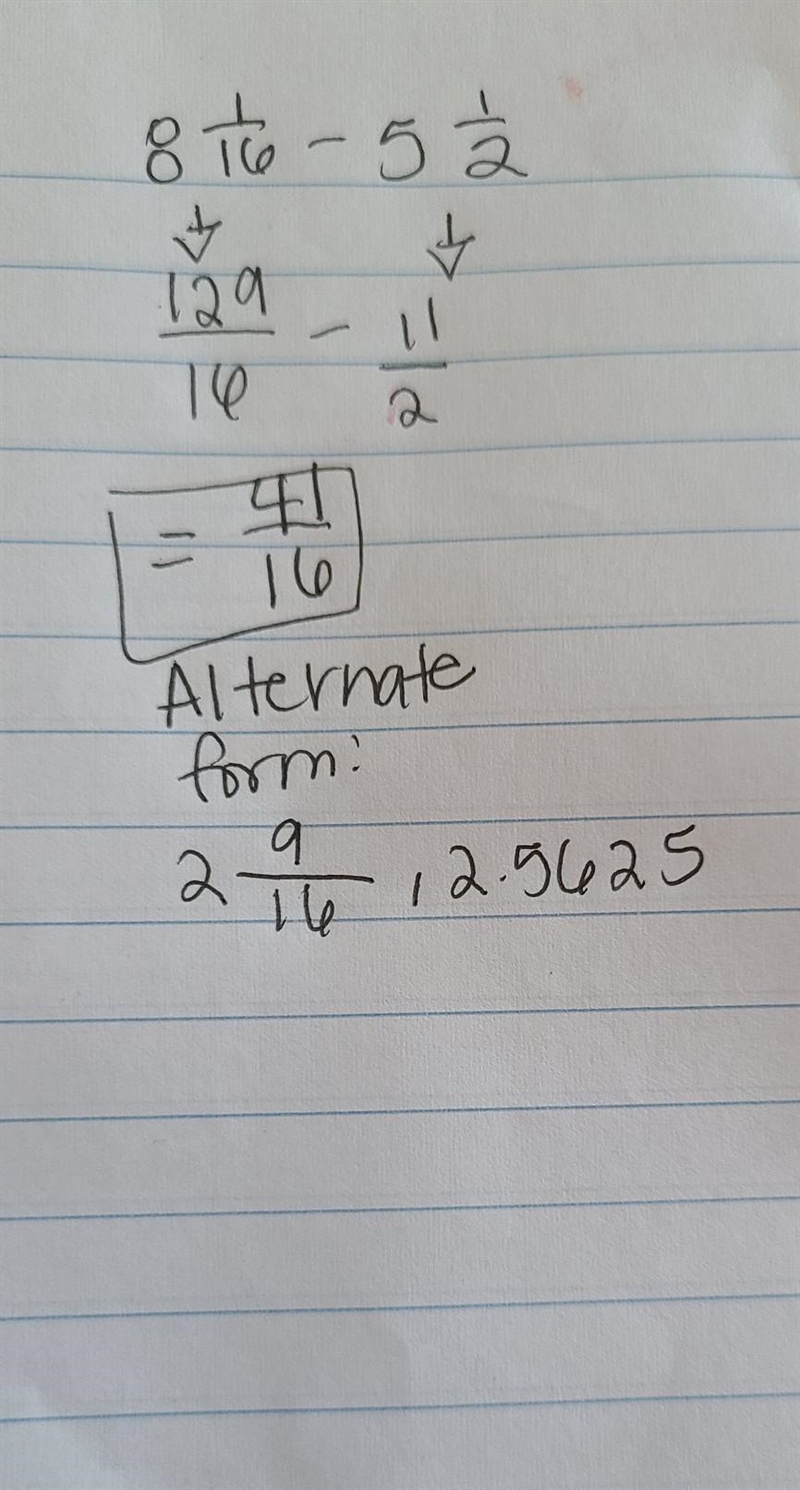 8 1/16 - 5 1/2
129/16 - 11/2
= 41/16
Alternate
form:
2 9/16 , 2.5625